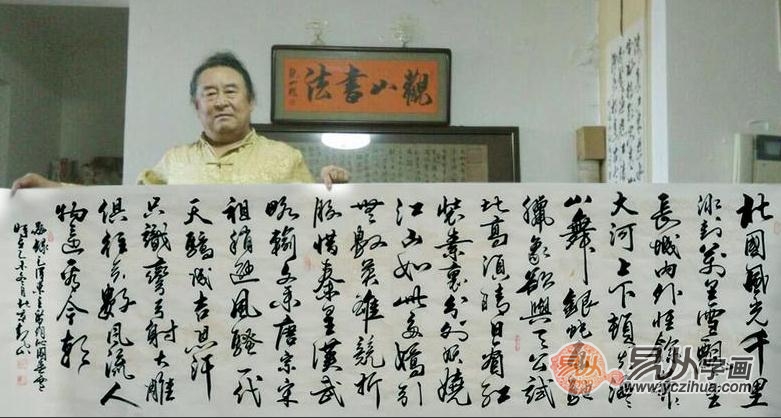 觀山書法
北國風光千里
冰封萬里雪飄望
長城內外惟餘莽
大河上下頓失滔
山舞銀蛇原馳
臘象欲與天公試
比高須晴日看紅
裝素裹分外妖嬈
江山如此多嬌引
無數英雄競折
腰惜秦皇漢武
略輸文采唐宗宋
祖稍遜風騷一代
天驕成吉思汗
只識彎弓射大雕
俱往矣數風流人
物還看今朝
毛澤東主席詞沁園春雪
時在乙未冬月 觀山
易从字画
www.yczihua.com